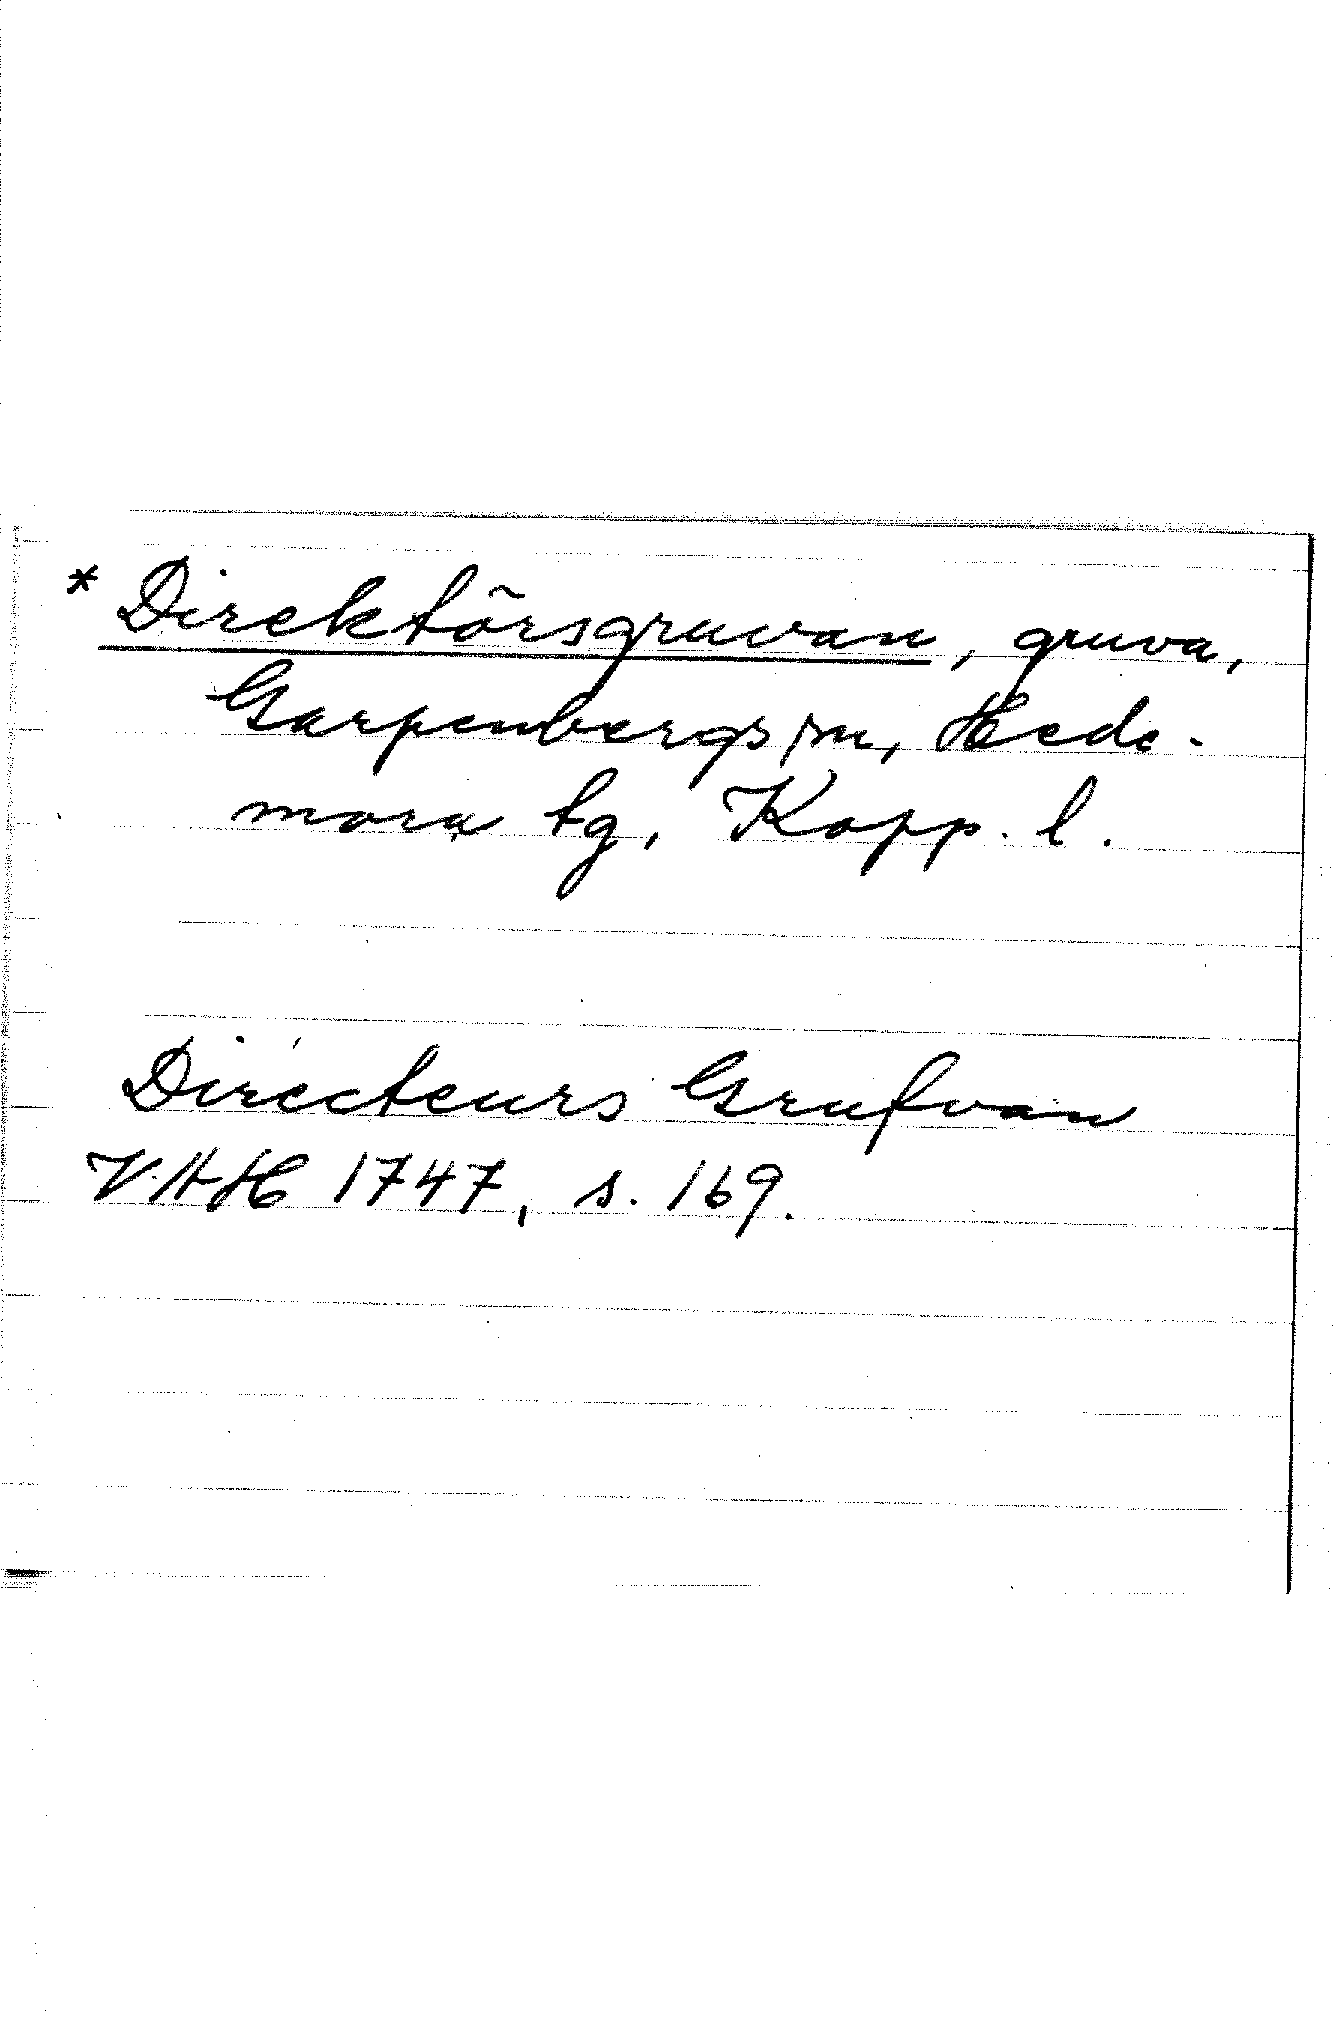 * Direktörsgruvan, gruva,
Garpenbergs sn, Hede-
mora tg, Kopp. l.
Directeurs Grufvan
VAH 1747, s. 169.